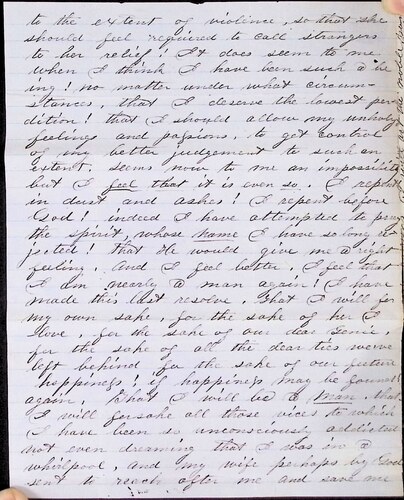 to the extent of violence, so that she
should feel required to call strangers
to her relief! It does seem to me
when I think I have been such a be
ing! no matter under what circum-
stances, that I deserve the lowest per
dition! that I should allow my unholy
feelings and passions, to get control
of my better judgement to such an
extent, seems now to me an impossibility
but I feel that it is even so. I repent
in dust and ashes! I repent before
God! indeed I have attempted to pray
the spirit, whose name I have so long re
jected! that He would give me a right
feeling, And I feel better, I feel that
I am nearly a man again! I have
made this last resolve, That I will for
my own sake, for the sake of her I
love, for the sake of our dear
for the sake of all the dear ties we've
left behind for the sake of our future
happiness! if happiness may be found
again, that I will be a man, that
I will forsake all those vices to which
I have been so unconsciously addicted
not even dreaming that I was in a
whirlpool, and my wife perhaps by God
sent to reach after me and save me